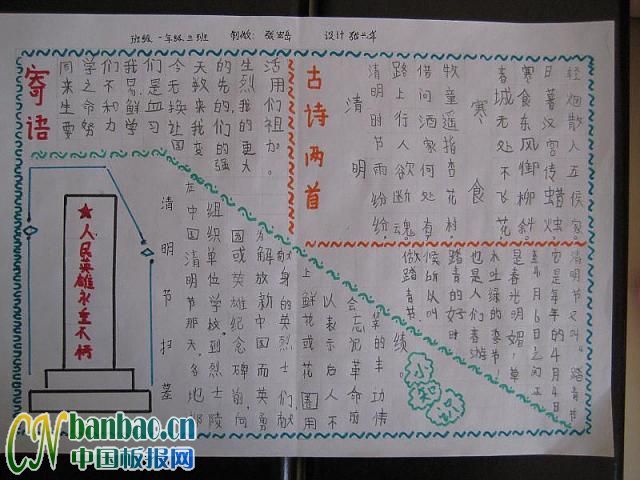 班级 一年级三班 制做：张 岳 设计 张 年
寄语
同学们我们今天的生活
来之不易是无数先烈用
生命和鲜血换来的我们
要努力学习让我们的祖
国变的更加
强大。
古诗两首
清明
清明时节雨纷纷，
路上行人欲断魂。
借问酒家何处有，
牧童遥指杏花村。
寒食
春城无处不飞花，
寒食东风御柳斜。
日暮汉宫传蜡烛，
轻烟散入五侯家。
人民英雄永垂不朽
清明节扫墓
在中国清明节那天，各地都
组织单位学校到烈士陵
园或英雄纪念碑前，向
为解放新中国而英勇
献身的英烈士们献
上鲜花或花圈用
以表示后人不
会忘记革命前
辈的丰功
绩。
小知识
清明节又叫踏青节
它是每年的4月4日
至4月6日之间正
是春光明媚，草
木吐绿的季节，
也是人们春游
踏青的好时
候所以叫
做踏青节。
CNbanbao.cn
中国板报网